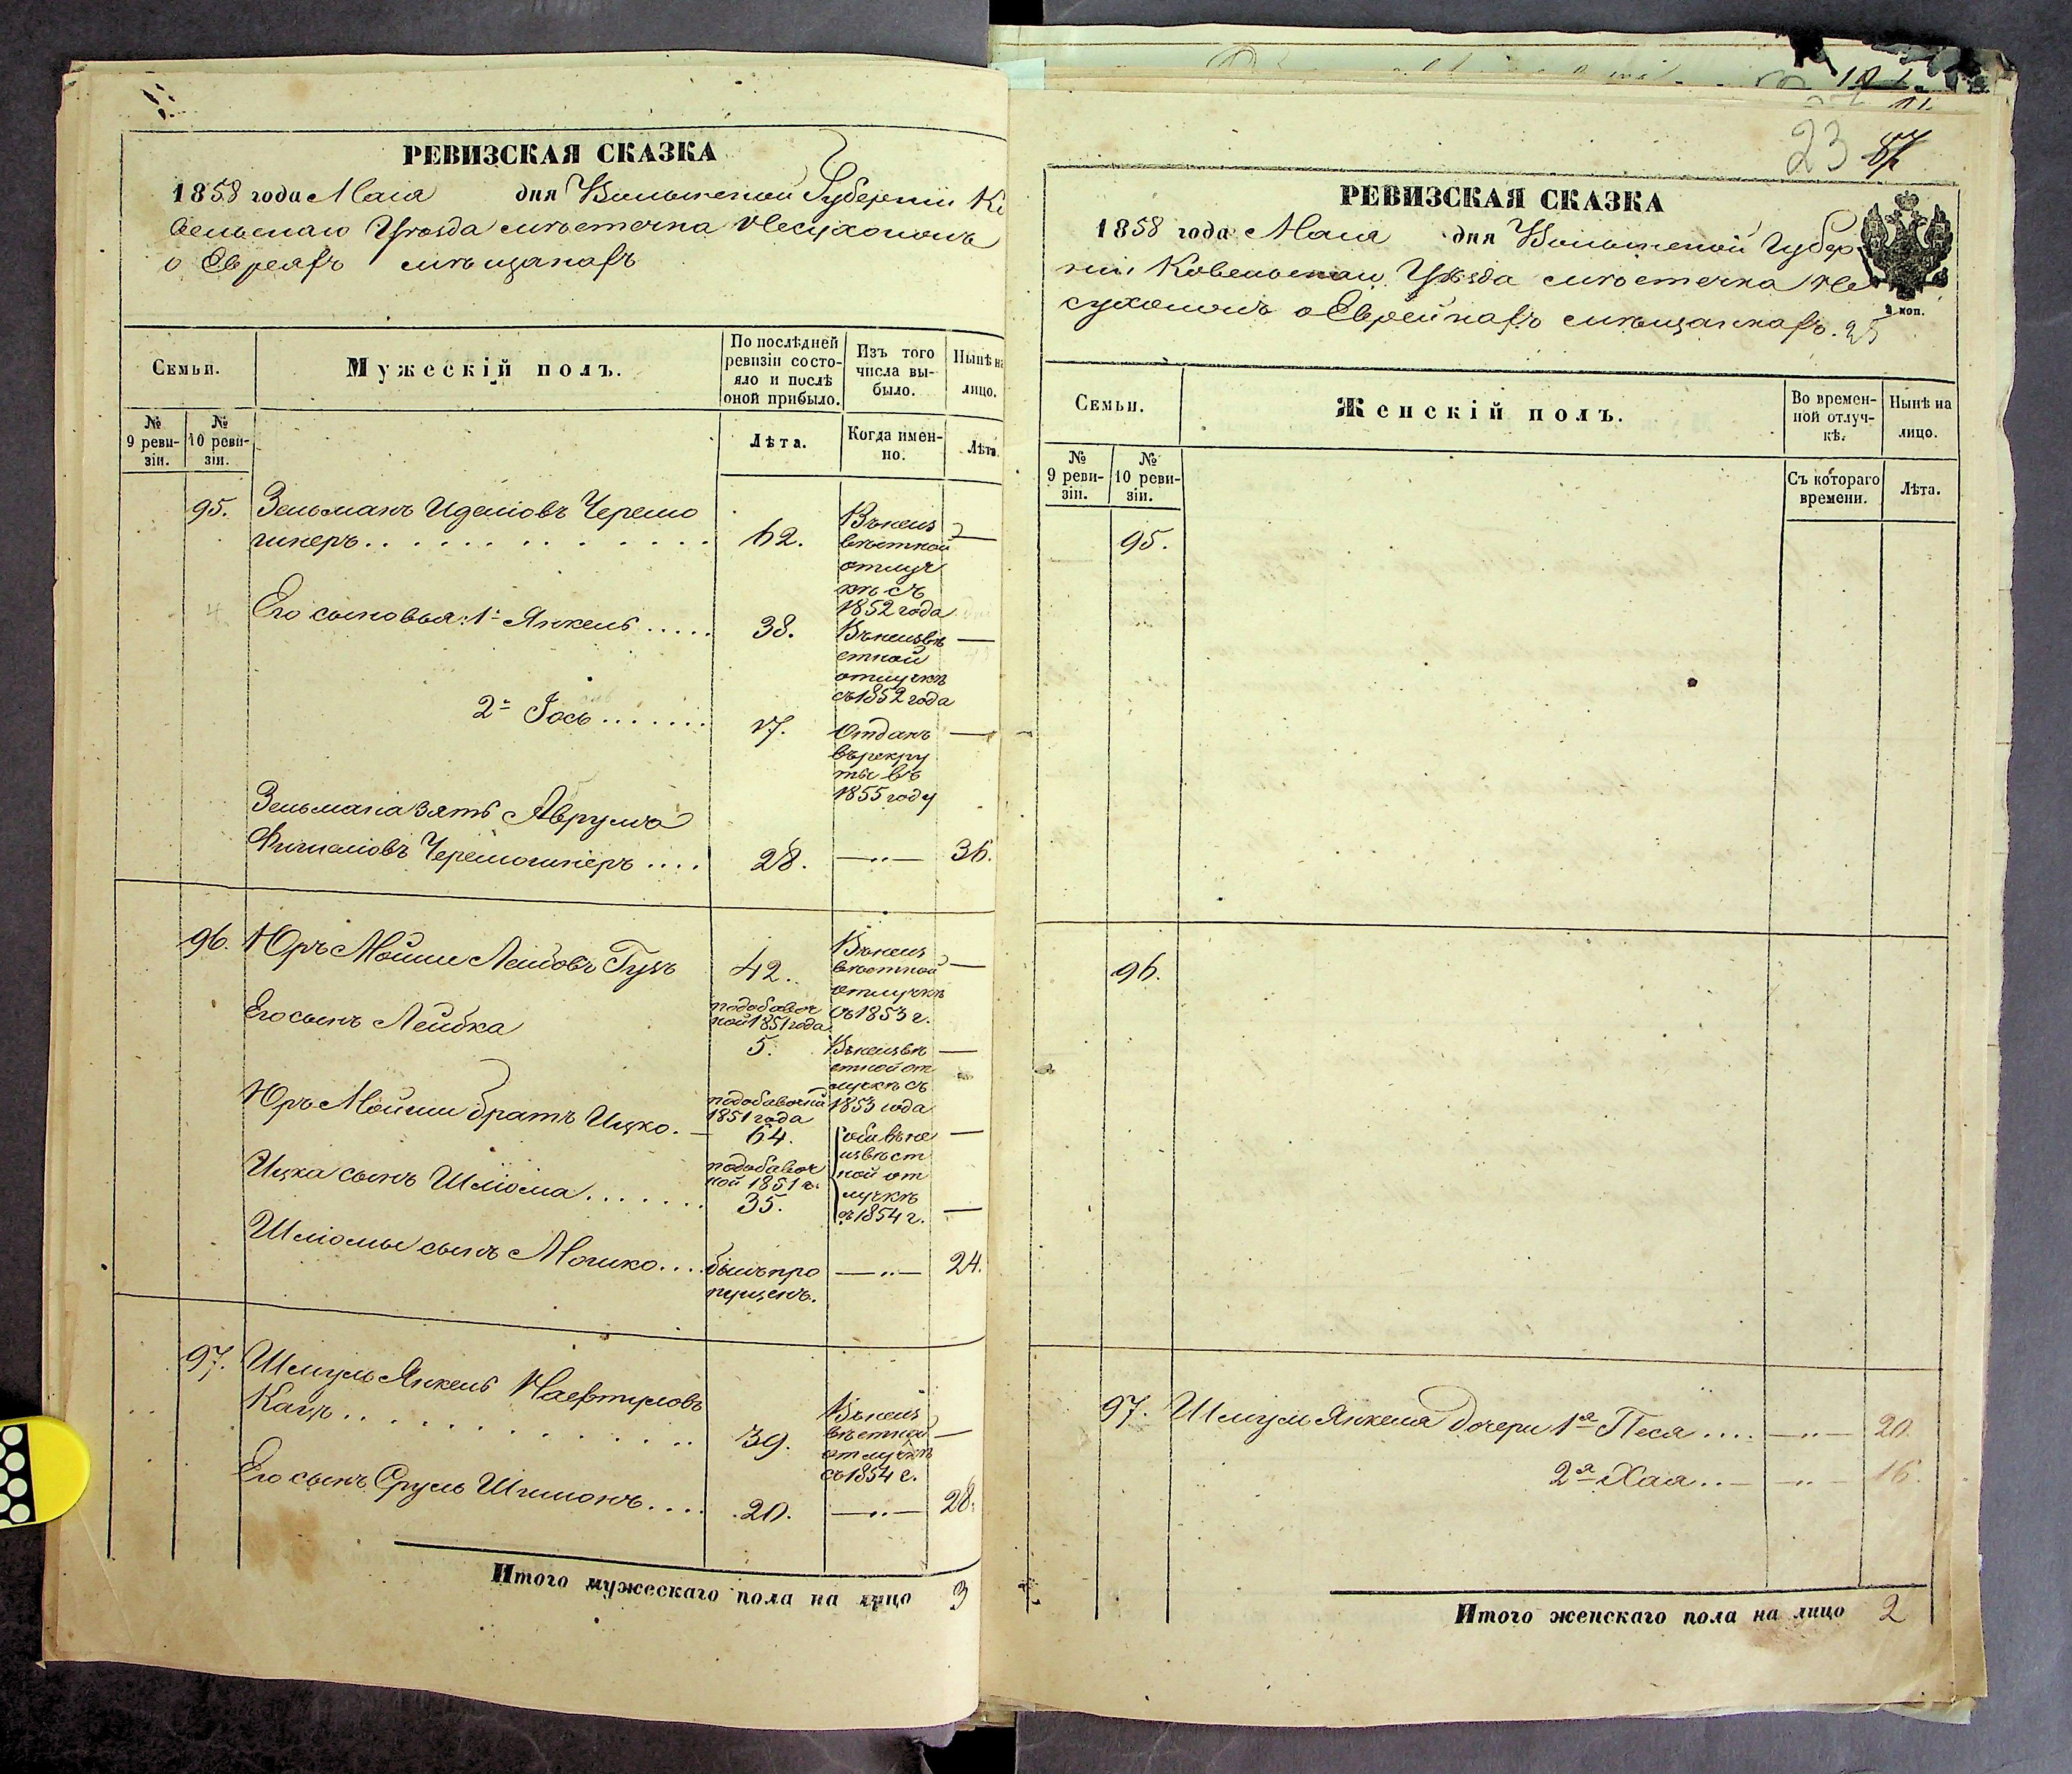 РЕВИЗСКАЯ СКАЗКА
1858 года Маія дня Волынской Губерніи Ко
вельскаго Уѣзда мѣстечка Несухоижъ
о Евреяхъ мѣщанахъ
Семьи.
Мужескій полъ.
По послѣдней ревизіи состояло и послѣ оной прибыло.
Изъ того числа выбыло.
Нынѣ на лицо.
№ 9 ревизіи.
№ 10 ревизіи.
Лѣта.
Когда именно.
Лѣта.
95. Зельманъ Черемо
шнеръ 62. Въ неиз
вѣстной
отлуч
кѣ съ
1852 года —
Его сыновья: 1й Янкель 38. Въ неизвѣ
стной
отлучкѣ
съ 1852 года —
2й Іось 17. Отданъ
въ рекру
ты въ
1855 году —
Зельмана зять Аврумъ
Черемошнеръ 28. —"— 36.
96. Юръ Мойше Лейбовъ 42. Въ неиз
вѣстной
отлучкѣ
съ 1853 г. —
Его сынъ Лейбка
по добавоч
ной 1851 года
5. Въ неизвѣ
стной от
лучкѣ съ
1853 года —
Юръ Мойши братъ Ицко.
по добавочной
1851 года
64. оба въ не
извѣст
ной от
лучкѣ
съ 1854 г. —
Ицка сынъ Шліома
по добавоч
ной 1851 г.
35. —
Шліомы сынъ Мошко былъ про
пущенъ. —"— 24.
97. Шмуль Янкель Нафтуловъ
Кацъ 39. Въ неиз
вѣстной
отлучкѣ
съ 1854 г. —
Его сынъ Сруль Шимонъ 20. —"— 28.
Итого мужескаго пола на лицо 3
23
РЕВИЗСКАЯ СКАЗКА
1858 года Маія дня Волынской Губер
ніи Ковельскаго Уѣзда мѣстечка Не
сухоижъ о Еврейкахъ мѣщанкахъ. 25
коп.
Семьи.
Женскій полъ.
Во временной отлучкѣ.
Нынѣ на лицо.
№ 9 ревизіи.
№ 10 ревизіи.
Съ котораго времени.
Лѣта.
95.
96.
97. Шмуль Янкеля дочери 1я Песя —"— 20.
2я Хая —"— 16.
Итого женскаго пола на лицо 2